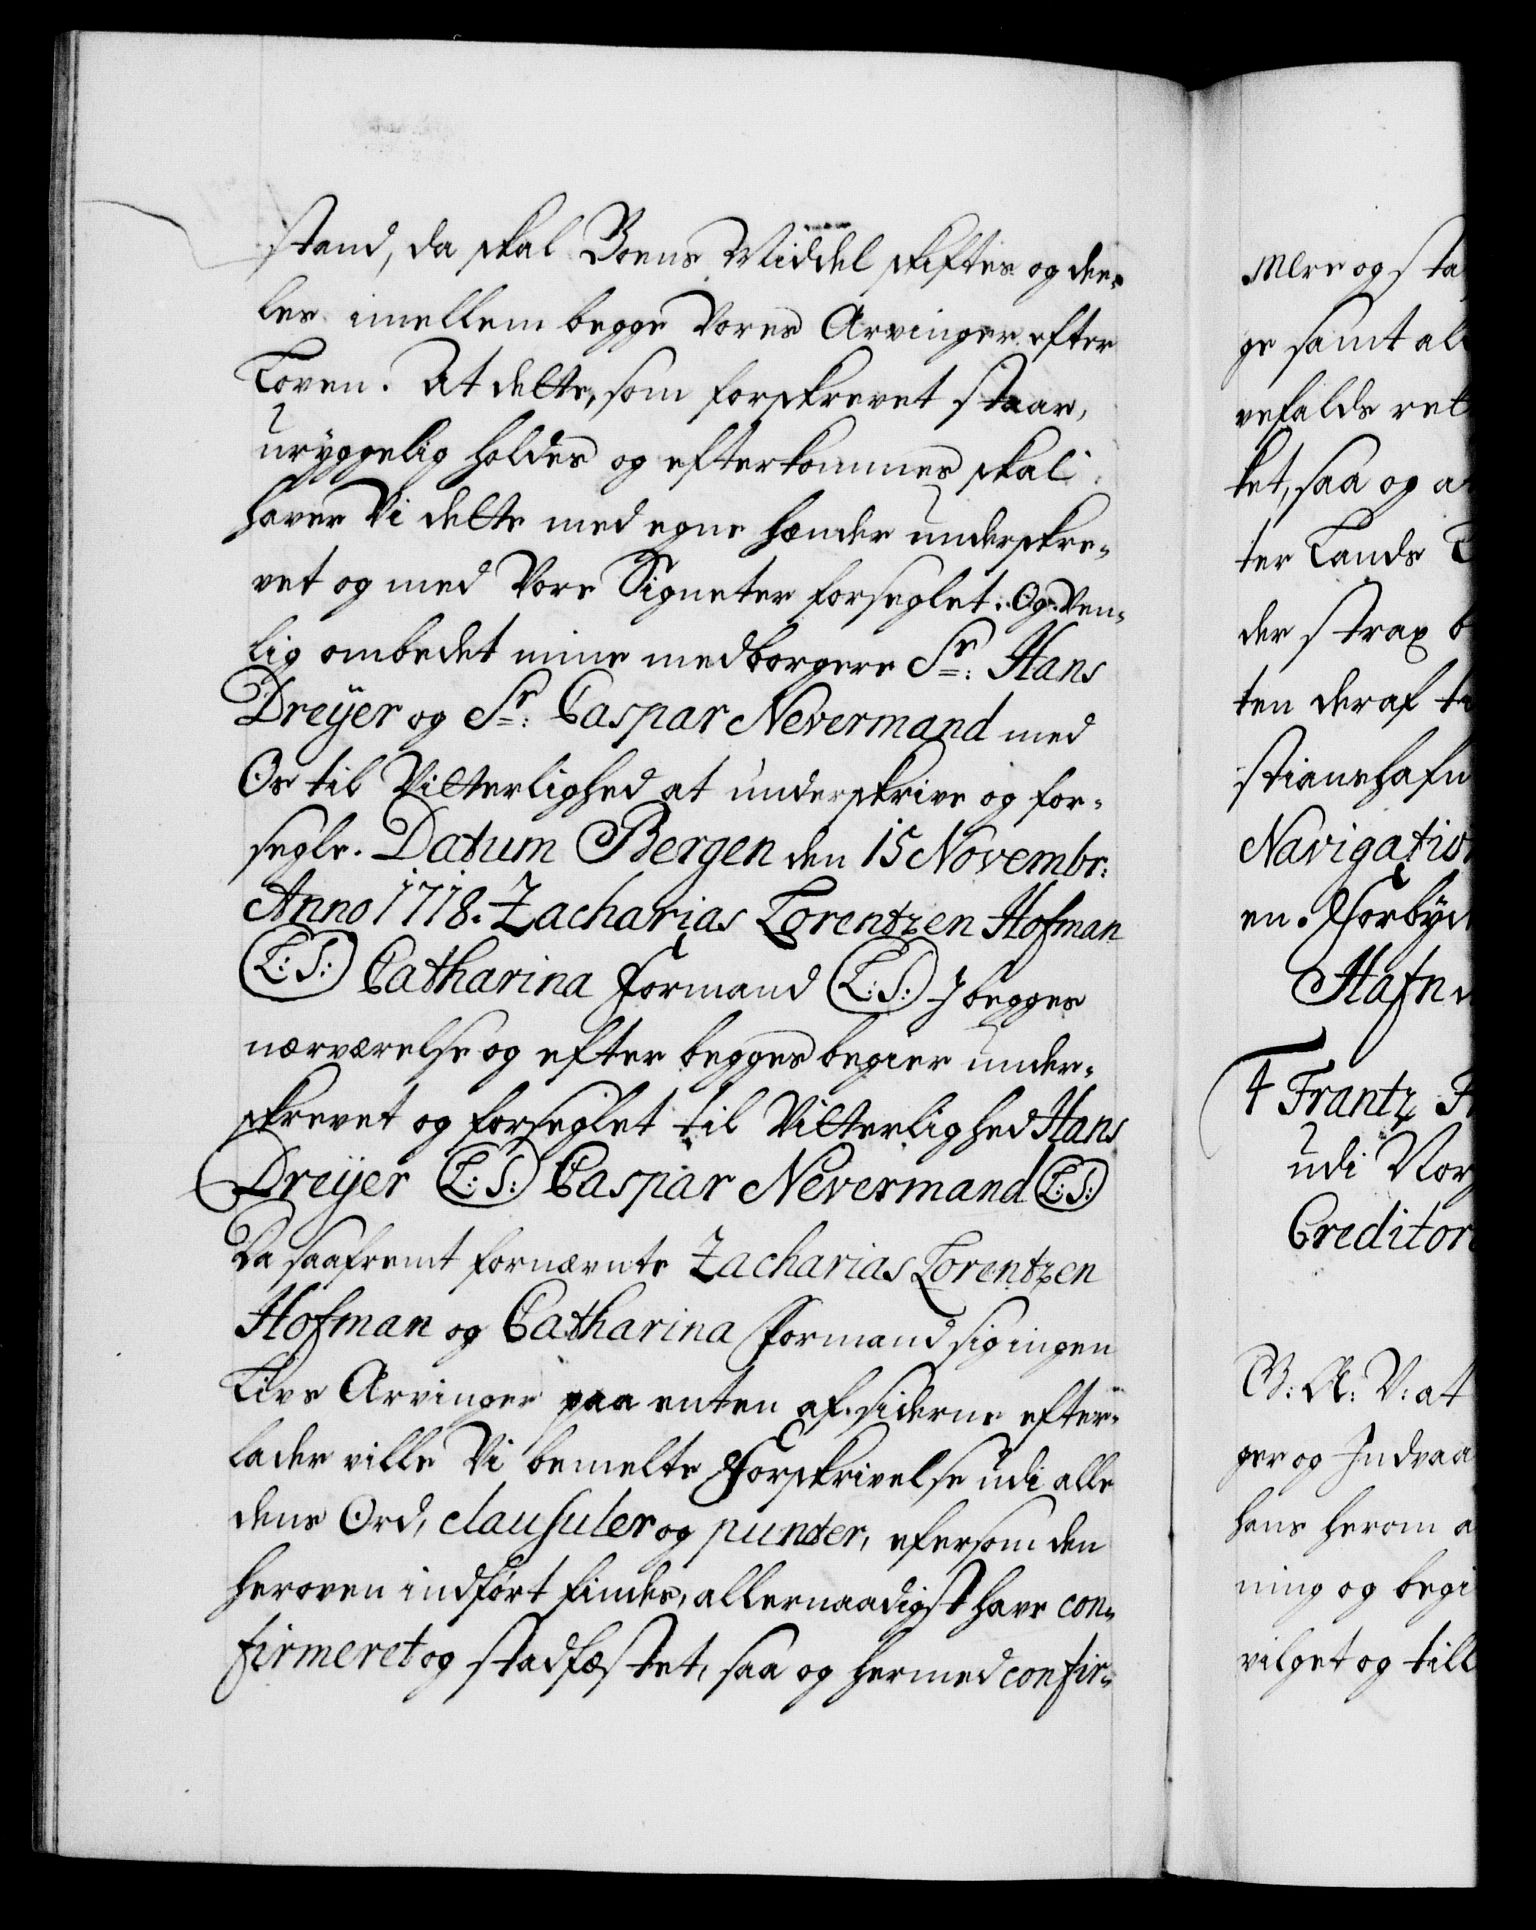 stand, da skal Boens Middel skiftes og dee-
les imellem begge Vores Arvinger efter
Loven. At dette, som forskrevet staar,
uryggelig holdes og efterkommes skal
haver Vi dette med egne hænder underskre-
vet og med Vore Signeter forseglet. Og ven-
lig ombedet mine medborgere Sr: Hans
Dreÿer og Sr: Caspar Nevermand med
Os til Vitterlighed at underskrive og for-
segle. Datum Bergen den 15 Novembr:
Anno 1718. Zacharias Lorentzen Hofman
(L:S:) Catharina Formand (L:S:) I begges
nærværelse og efter begges begier under-
skrevet og forseglet til Vitterlighed Hans
Dreÿer (L:S:) Caspar Nevermand (L:S:)
Da saafremt fornævnte Zacharias Lorentzen
Hofman og Catharina Formand sig ingen
Livs Arvinger paa enten af siderne efter-
lader ville Vi bemelte Forskrivelse udi alle
dens Ord, clausuler og puncter, efersom den
heroven indført findes, allernaadigst have con-
firmeret og stadfæstet, saa og hermed confir-
mere og sta
ge samt al
vefalds ret
ket, saa og a
ter Lands L
der strax b
ten deraf t
stianshafn
Navigation
en. Forbyd
Hafn
4 Frantz
udi Nor
Creditor
G: A: V: at
ger og Indvaa
hans herom a
ning og begi
vilget og till